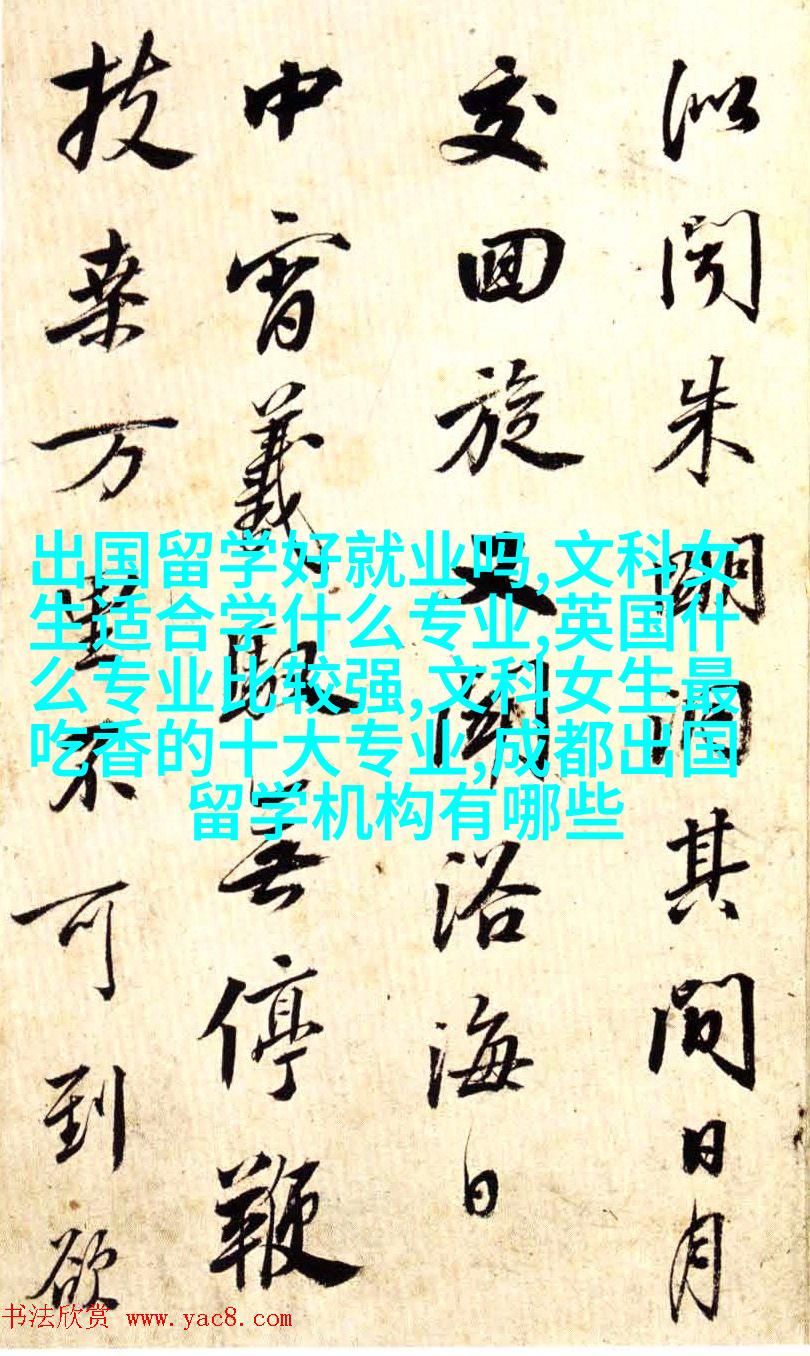 似聞朱明洞其間日月
交回旋又聞浴海日
中宵羲馭無停鞭
扶桑万里不可到欲
出国留学好就业吗,文科女
生适合学什么专业,英国什
么专业比较强,文科女生最
吃香的十大专业,成都出国
留学机构有哪些
书法欣赏 www.yac8.com